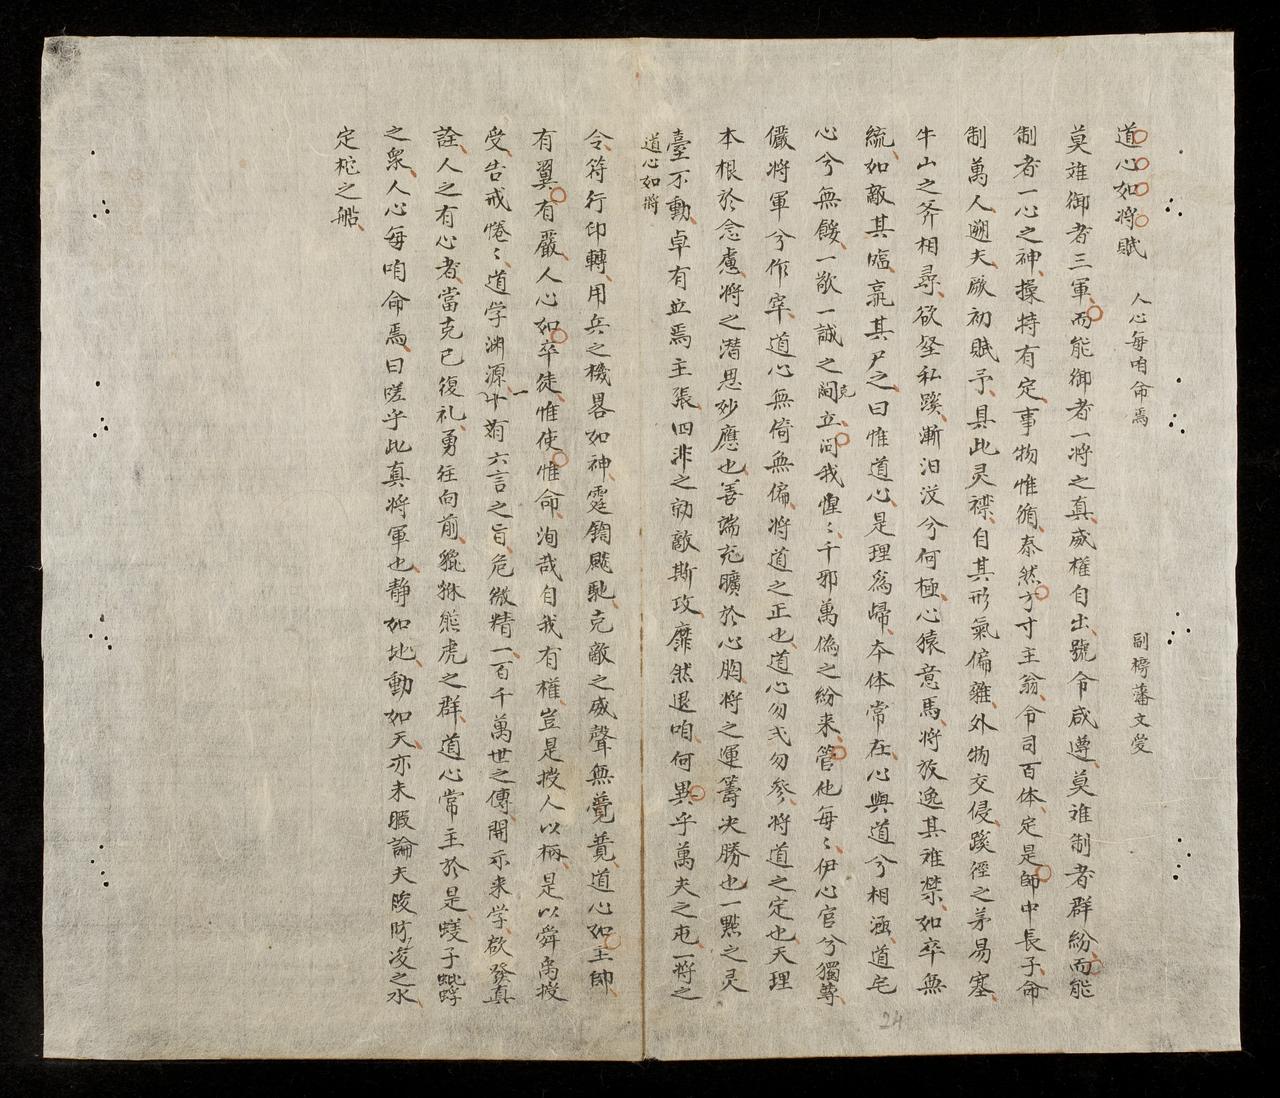 道心如将賦　人心每咱命焉　副榜藩文愛
莫难御者三軍而能御者一将之真威權自出號令咸遵莫难制者群紛而能
制者一心之神操持有定事物惟循泰然方寸主翁令司百体定是師中長子命
制萬人遡夫厥初賦予具此灵襟自其形氣偏雜外物交侵蹊徑之茅易塞
牛山之斧相尋欲壑私蹊漸汨汶兮何極心猿意馬将放逸其难禁如卒無
統如敵其臨亶其尹之曰惟道心是理爲歸本体常在心與道兮相涵道宅
心兮無餒一敬一誠之閫立问我惺〻千邪萬僞之紛来管他每〻伊心官兮獨尊
儼将軍兮作宰道心無倚無偏将道之正也道心勿弍勿參将道之定也天理
本根於念慮将之潜思妙應也善端充曠於心胸将之運籌决勝也一㸃之灵
臺不動卓有立焉主張四非之勍敵斯攻靡然退咱何異乎萬夫之屯一将之
道心如將
令符行印轉用兵之機畧如神霆鍧飈馳克敵之威聲無覺蕘道心如主帥
有翼有嚴人心如卒徒惟使惟命洵哉自我有權豈是授人以柄是以舜禹授
受告戒惓〻道学渊源有六言之旨危微精一百千萬世之傳開示来学欲發真
詮人之有心者當克已復礼勇往向前貔貅熊虎之群道心常主於是蟻子蚍蜉
之衆人心每咱命焉曰嗟乎此真将軍也静如地動如天亦未暇論夫
定柁之船